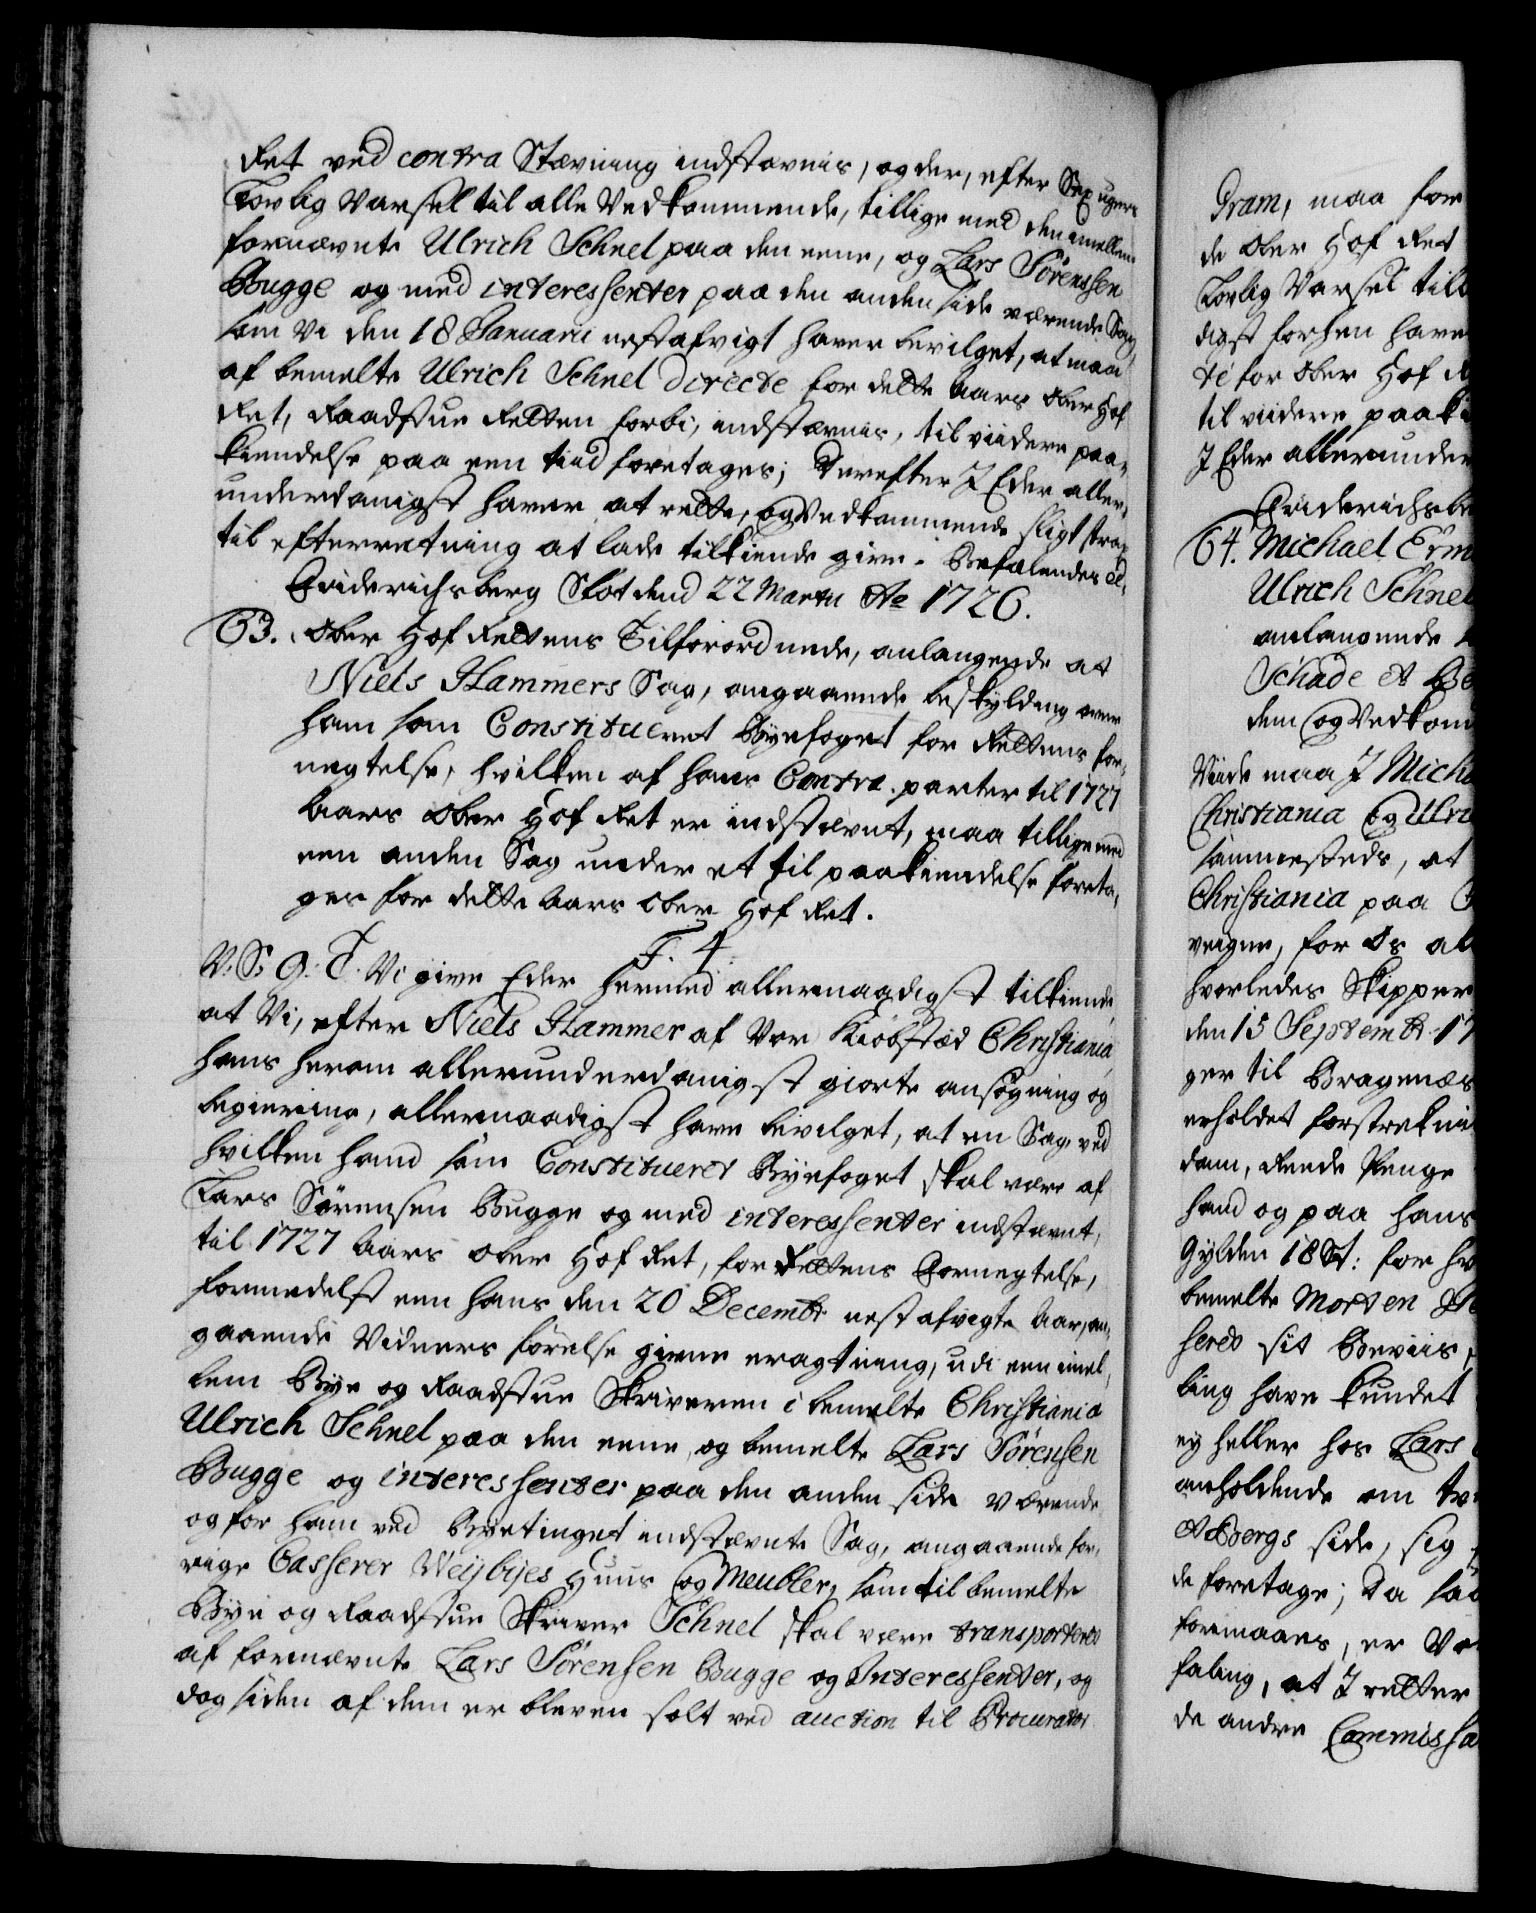 Ret ved contra Stævning indstævnis, og der, efter Sex ugers
Lovlig Varsel til alle Vedkommende, tillige med den imellem
fornævnte Ulrich Schnel paa den eene, og Lars Sørenssen
Bugge og med interessenter paa den anden side værende Sag,
som Vi den 18 Januarii nestafvigt haver bevilget, at maa
af bemelte Ulrich Schnel directe for dette Aars Ober Hof
Ret, Raadstue Retten forbi, indstævnis, til viidere paa-
kiendelse paa een tiid foretages; Derefter I Eder aller-
underdanigst haver at rette, og Vedkommende sligt strax
til efterretning at lade tilkiende give. Befalendes &.
Friderichsberg Slot dend 22 Martii Ao 1726.
63. Ober Hof Rettens Tilforordnede, anlangende at
Niels Hammers Sag, angaaende beskylding over
ham som Constitueret Byefoget for Rettens for-
negtelse, hvilken af hans Contra-parter til 1727
Aars Ober Hof Ret er indstævnt, maa tillige med
een anden Sag under et til paakiendelse foreta-
ges for dette Aars Ober Hof Ret.
F. 4.
V: S: G: T. Vi give Eder hermed allernaadigst tilkiende,
at Vi, efter Niels Hammer af Vor Kiøbstæd Christiania,
hans herom allerunderdanigst giorte ansøgning og
begiering, allernaadigst have bevilget, at en Sag, ved
hvilken hand som Constitueret Byefoget skal være af
Lars Sørensen Bugge og med interessenter indstævnt,
til 1727 Aars Ober Hof Ret, for Rettens Fornegtelse,
formedelst een hans den 20 Decembr: nestafvigte Aar, an-
gaaende Vidners førelse givne eragtning, udi een imel-
lem Bye og Raadstue Skriveren i bemelte Christiania
Ulrich Schnel paa den eene, og bemelte Lars Sørensen
Bugge og interessenter paa den anden side værende
og for ham ved Byetinget indstævnte Sag, angaaende for-
rige Casserer Weijbijes Huus og Meubler, som til bemelte
Bye og Raadstue Skriver Schnel skal være transporteret
af fornævnte Lars Sørensen Bugge og Interessenter, og
dog siden af dem er bleven solt ved auction til Procurator
Pram, maa for
de Ober Hof Ret
Lovlig Varsel till
digst forhen have
te for Ober Hof R
til viidere paaki
I Eder allerunder
Friderichsbe
64. Michael Erm
Ulrich Schnel
anlangende
Schade et Be
dem og Vedkom
Viide maa I Micha
Christiania og Ulri
sammesteds, at
Christiania paa
veigne, for Os al
hvorledes Skipper
den 15 Septembr. 17
ger til Bragenæs
erholdet forstrekni
dam, Rende Penge
hand og paa hans
Gylden 18 St: for hv
bemelte Morten
seret sit Beviis,
ling have kundet
ey heller hos Lars
anholdende om tve
Abergs side, sig
de foretage; Da saa
formaaes, er Vo
faling, at I retter
de andre Commissa